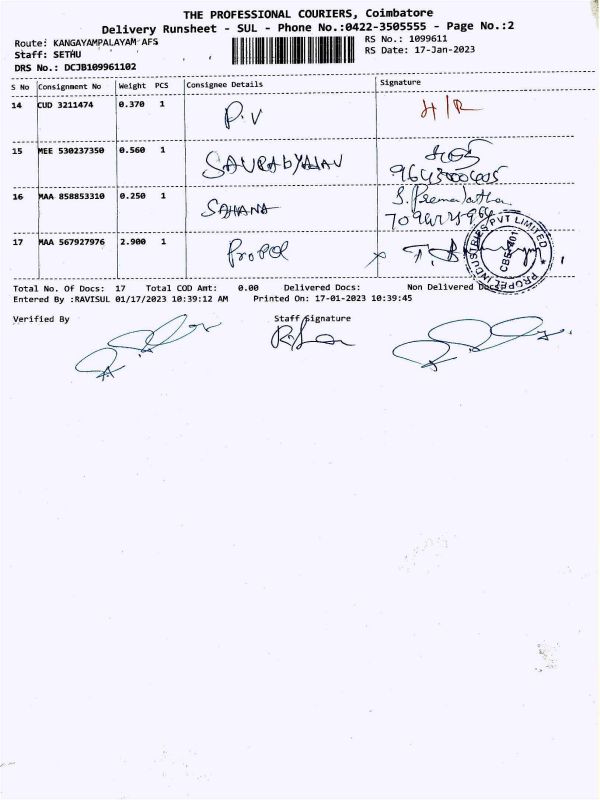 THE PROFESSIONAL COURIERS, Coimbatore
Delivery Runsheet - SUL - Phone No.:0422-3505555 - Page No.:2
Route: KANGAYAMPALAYAM AFS
RS No.: 1099611
Staff: SETHU
RS Date: 17-Jan-2023
DRS No.: DCJB109961102
S No Consignment No Weight PCS Consignee Details Signature
14 CUD 3211474 0.370 1 P.V H/R
15 MEE 530237350 0.560 1 SAURABYADAV
16 MAA 858853310 0.250 1 SAHANA S. Premalatha
17 MAA 567927976 2.900 1 Propel
PROPEL INDUSTRIES PVT LIMITED
CBE-401
Total No. Of Docs: 17 Total COD Amt: 0.00 Delivered Docs: Non Delivered Docs:
Entered By :RAVISUL 01/17/2023 10:39:12 AM Printed On: 17-01-2023 10:39:45
Verified By Staff Signature